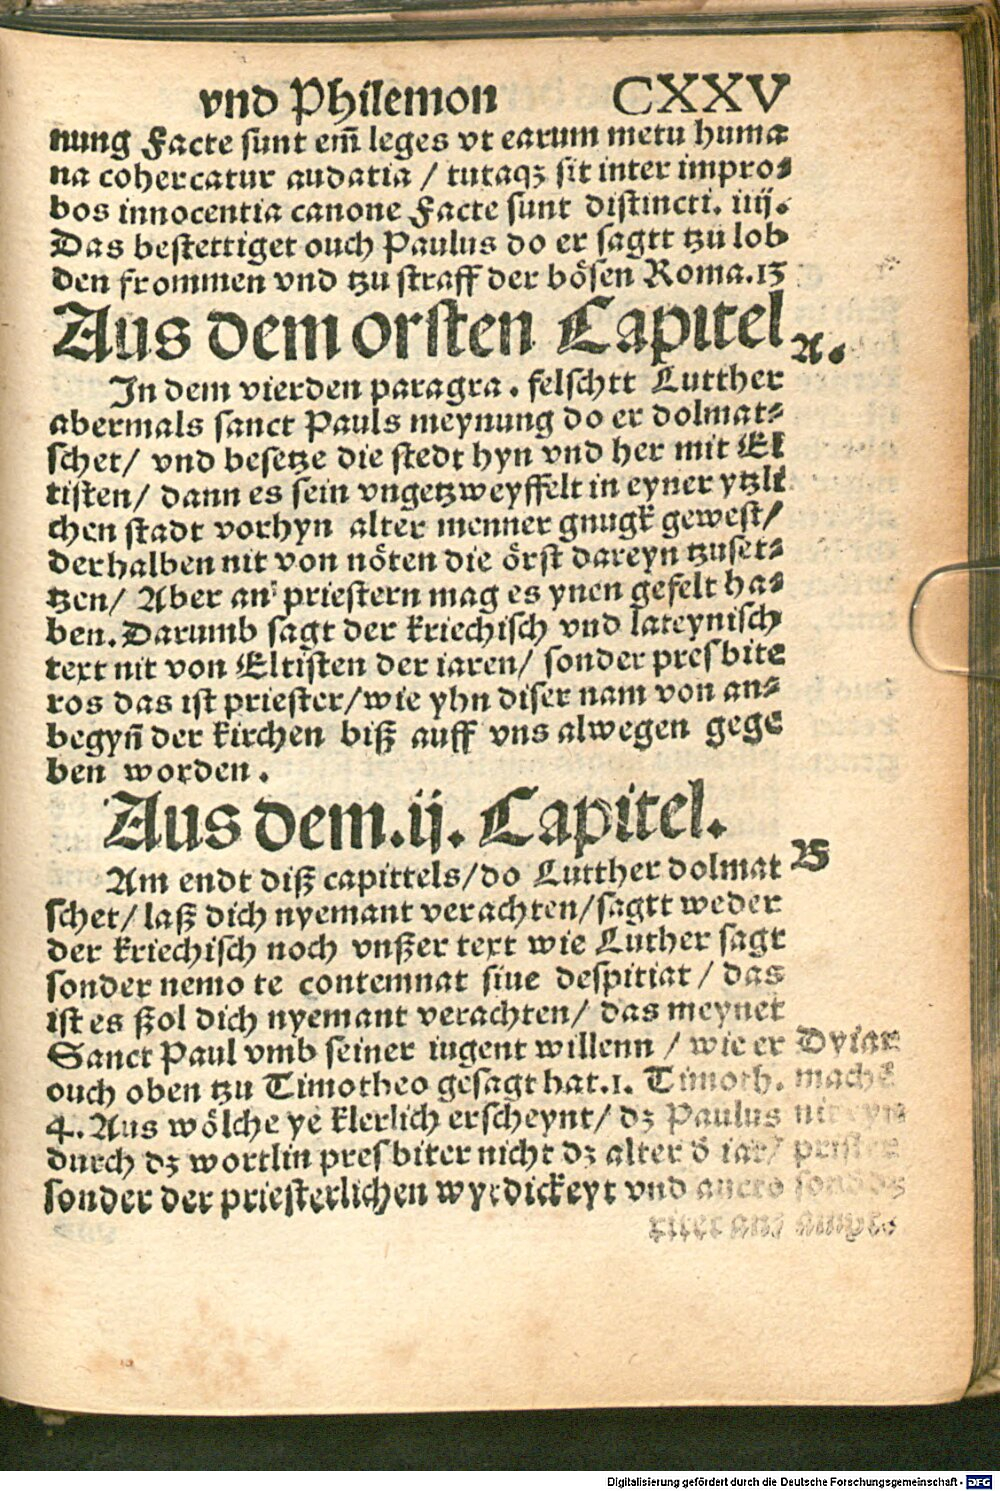 vnd Philemon CXXV
nung Facte sunt em̄ leges vt earum metu huma
na cohercatur audatia / tutaqȝ sit inter impro⸗
bos innocentia canone Facte sunt distincti. iiij.
Das bestettiget ouch Paulus do er sagtt tzu lob
den frommen vnd tzu straff der bösen Roma.13
Aus dem orsten Capitel
A.
In dem vierden paragra. felschtt Lutther
abermals sanct Pauls meynung do er dolmat⸗
schet/ vnd besetze die stedt hyn vnd her mit El
tisten/ dann es sein vngetzweyffelt in eyner ytzli
chen stadt vorhyn alter menner gnugk gewest/
derhalben nit von nöten die örst dareyn tzuset⸗
tzen/ Aber an priestern mag es ynen gefelt ha⸗
ben. Darumb sagt der kriechisch vnd lateynisch
text nit von Eltisten der iaren/ sonder presbite
ros das ist priester/wie yhn diser nam von an⸗
begyn̄ der kirchen biß auff vns alwegen gege
ben worden.
Aus dem.ij. Capitel.
B
Am endt diß capittels/do Lutther dolmat
schet/ laß dich nyemant verachten/sagtt weder
der kriechisch noch vnßer text wie Luther sagt
sonder nemo te contemnat siue despitiat / das
ist es ßol dich nyemant verachten/ das meynet
Sanct Paul vmb seiner iugent willenn / wie er
ouch oben tzu Timotheo gesagt hat.1. Timoth.
4. Aus wölche ye klerlich erscheynt/ dȝ Paulus
durch dȝ wortlin presbiter nicht dȝ alter d̄ iar/
sonder der priesterlichen wyrdickeyt vnd aucto
Dyiar
machē
nit eyn
prister
sond dȝ
Digitalisierung gefördert durch die Deutsche Forschungsgemeinschaft - DFG